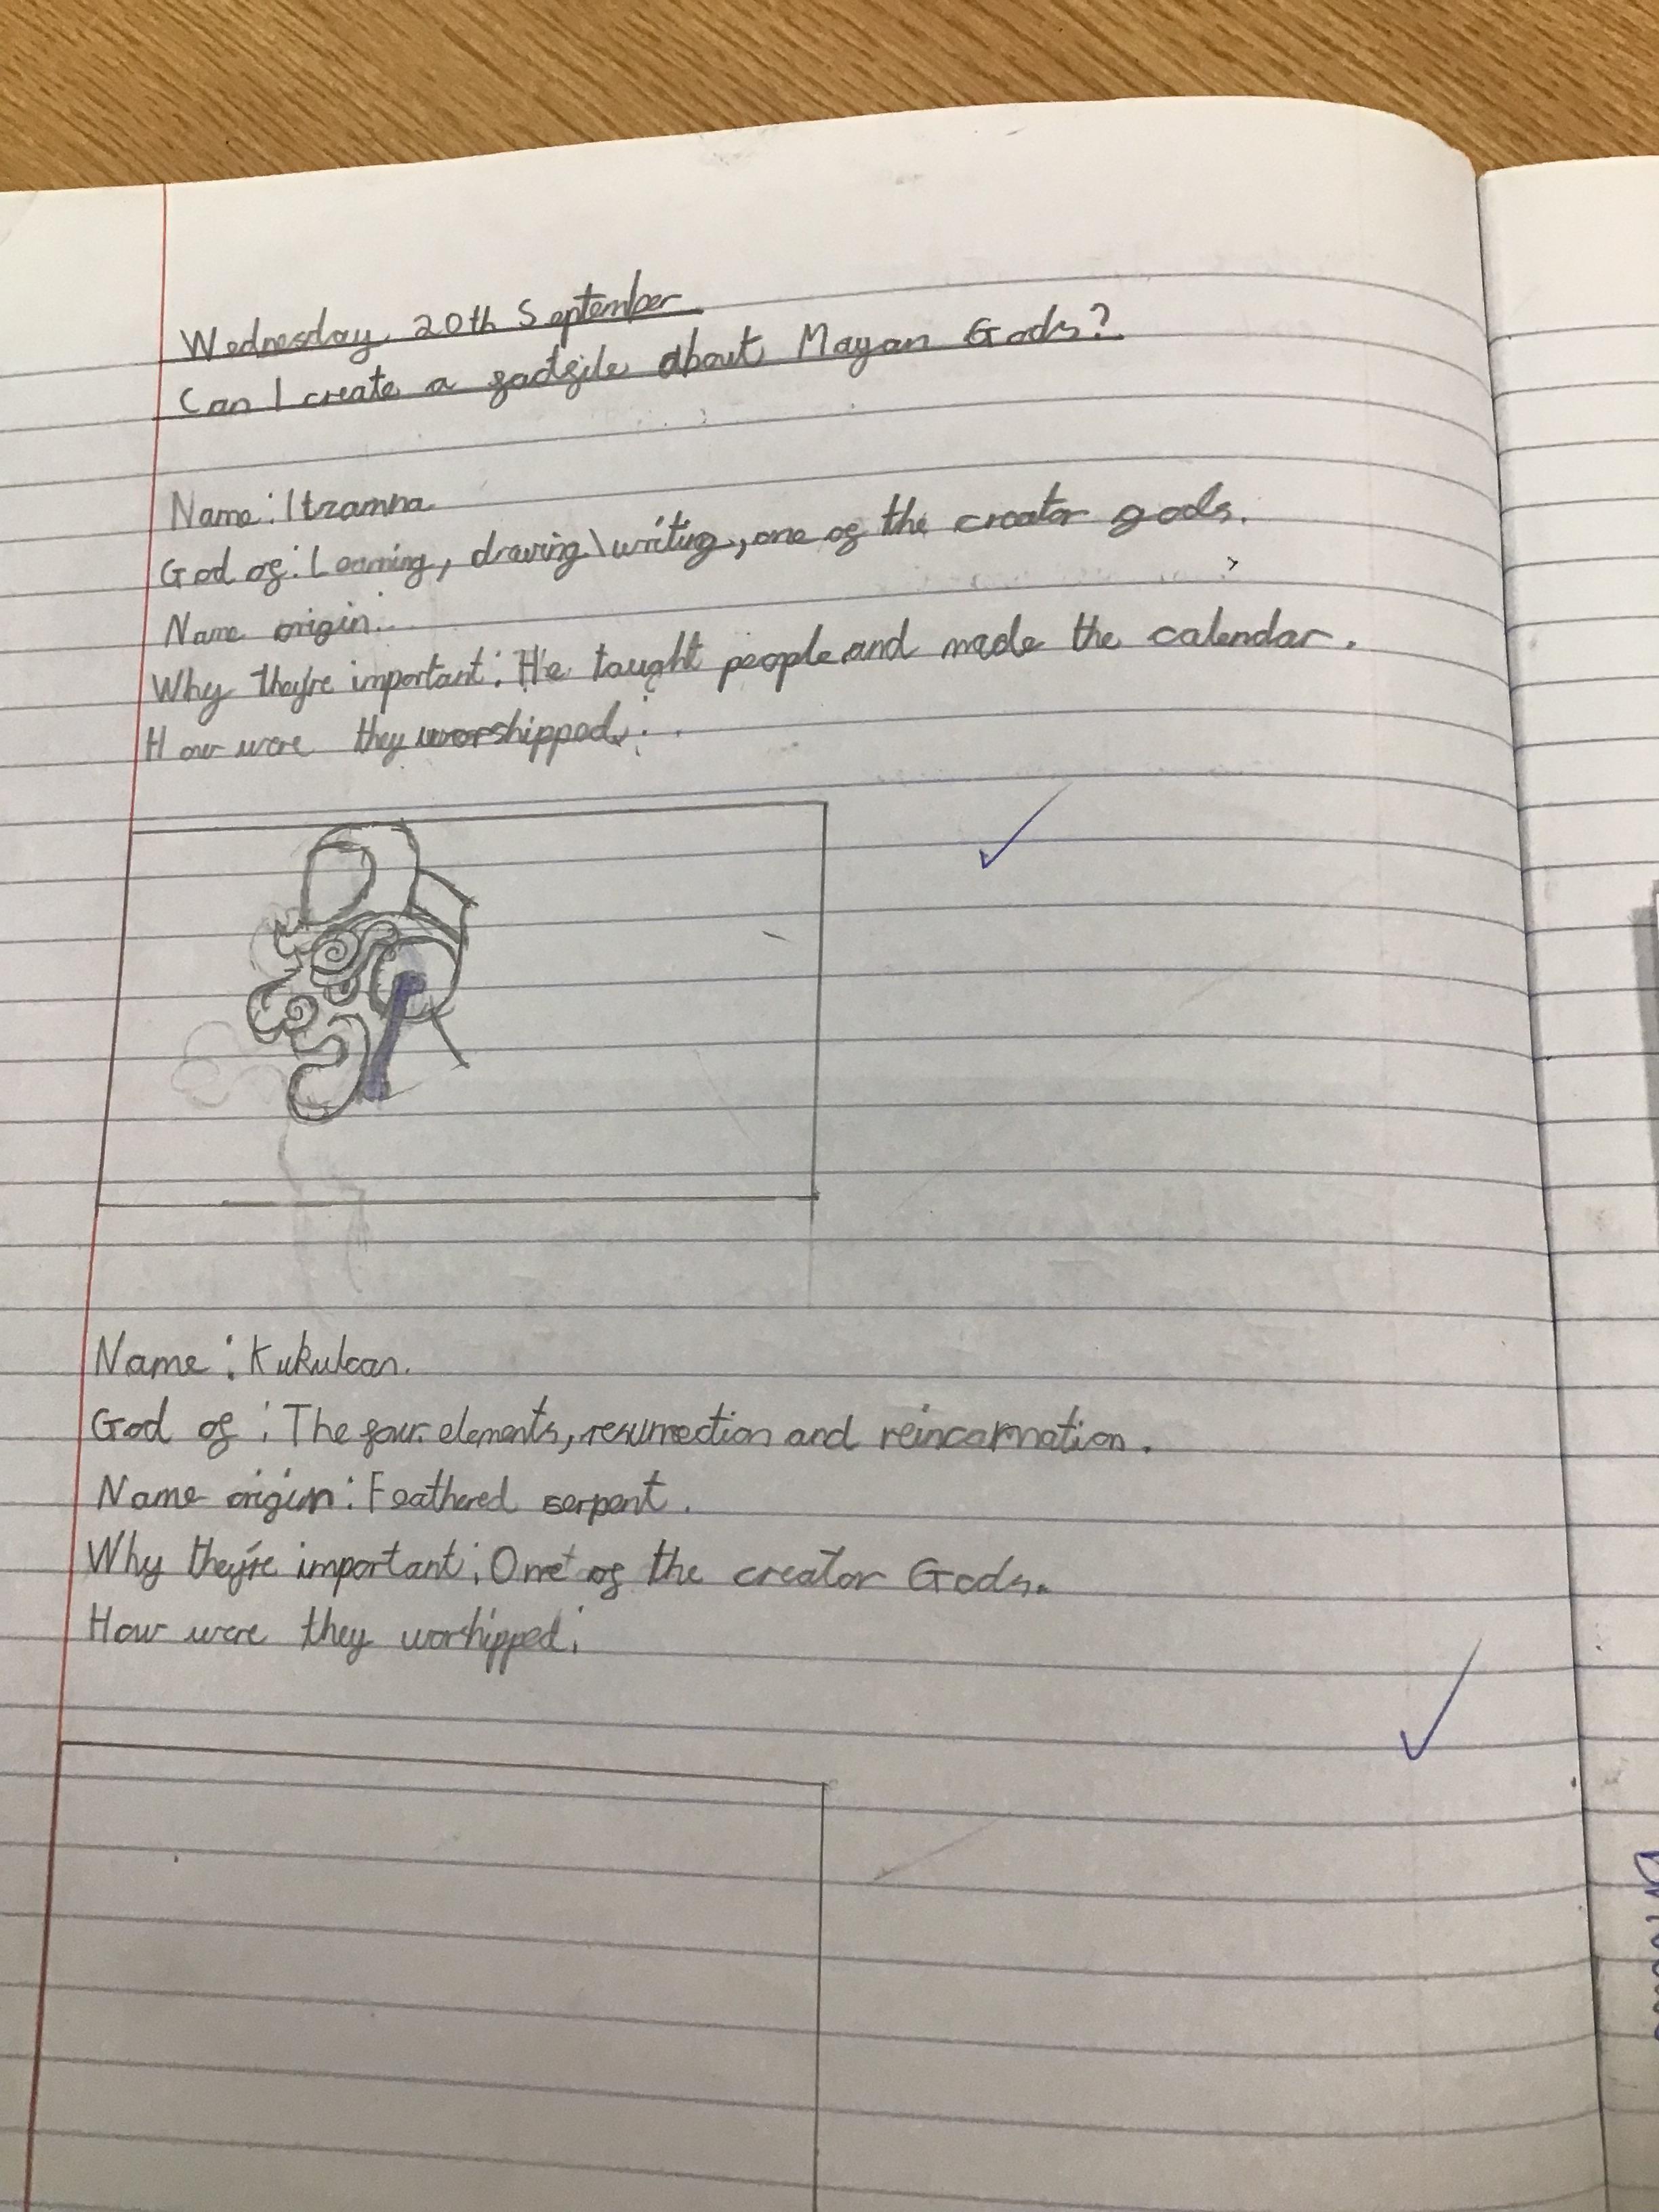 Wednesday 20th September
Can I create a factfile about Mayan Gods?
Name: Itzamna
God of: Learning, drawing\writing, one of the creator gods.
Name origin:
Why they're important: He taught people and made the calendar.
How were they worshipped:
Name: Kukulcan.
God of: The four elements, resurrection and reincarnation.
Name origin: Feathered serpent.
Why they're important: One of the creator Gods.
How were they worshipped: